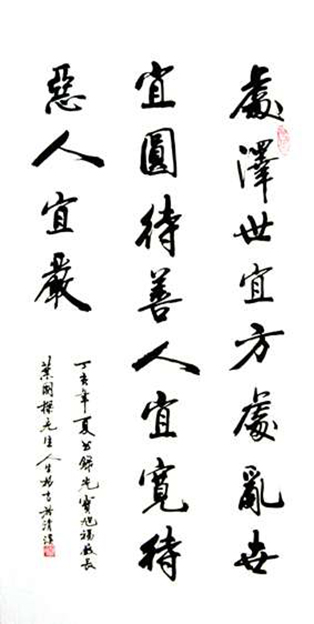 處澤世宜方處亂世
宜圓待善人宜寬待
惡人宜嚴
丁亥年夏書錄光寶旭福長
葉國先生人生格言於清